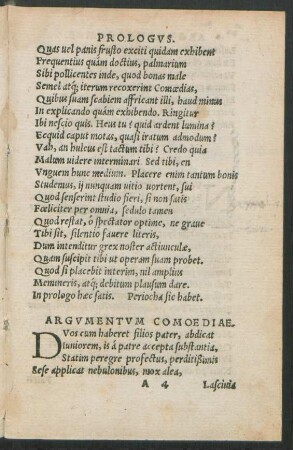 PROLOGVS.
Quas uel panis frusto exciti quidam exhibent
Frequentius quàm doctius, palmarium
Sibi pollicentes inde, quod bonas male
Semel atq; iterum recoxerint Comœdias,
Quibus suam scabiem affricant illi, haud minus
In explicando quàm exhibendo. Ringitur
Ibi nescio quis. Heus tu? quid ardent lumina?
Ecquid caput motas, quasi iratum admodum?
Vah, an hulcus est tactum tibi? Credo quia
Malum uidere interminari. Sed tibi, en
Vnguem hunc medium. Placere enim tantum bonis
Studemus, ij nunquam uitio uortent, sui
Quod senserint studio fieri, si non satis
Fœliciter per omnia, sedulo tamen
Quod restat, ô spectator optime, ne graue
Tibi sit, silentio fauere literis,
Dum intenditur grex noster actiunculæ,
Quam suscipit tibi ut operam suam probet.
Quod si placebit interim, nil amplius
Memineris, atq; debitum plausum dare.
In prologo hæc satis. Periocha sic habet.
ARGVMENTVM COMOEDIAE.
DVos cum haberet filios pater, abdicat
Iuniorem, is à patre accepta substantia,
Statim peregre profectus, perditißimis
Sese applicat nebulonibus, mox alea,
A 4 Lasciuia